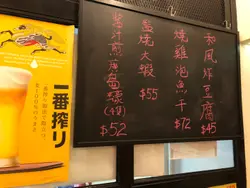 和風炸豆腐
$45
燒雞泡魚干
$72
鹽燒大蝦
$55
醬汁煎廣島蠔(4隻)
$52
一番搾り